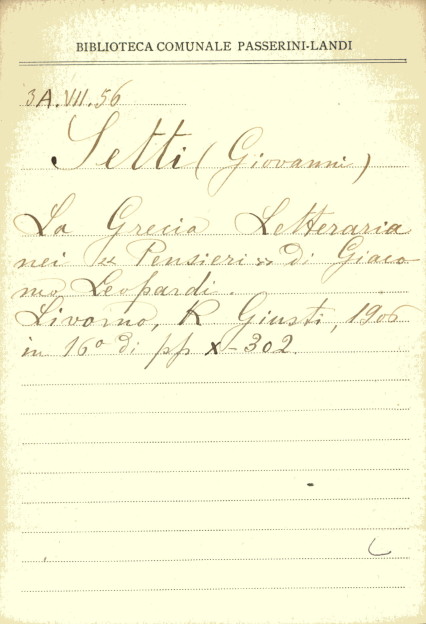 BIBLIOTECA COMUNALE PASSERINI-LANDI
3A.VII.56
Setti (Giovanni)
La Grecia Letteraria
nei « Pensieri » di Giaco
mo Leopardi.
Livorno, R Giusti, 1906
in 16º di pp X-302.